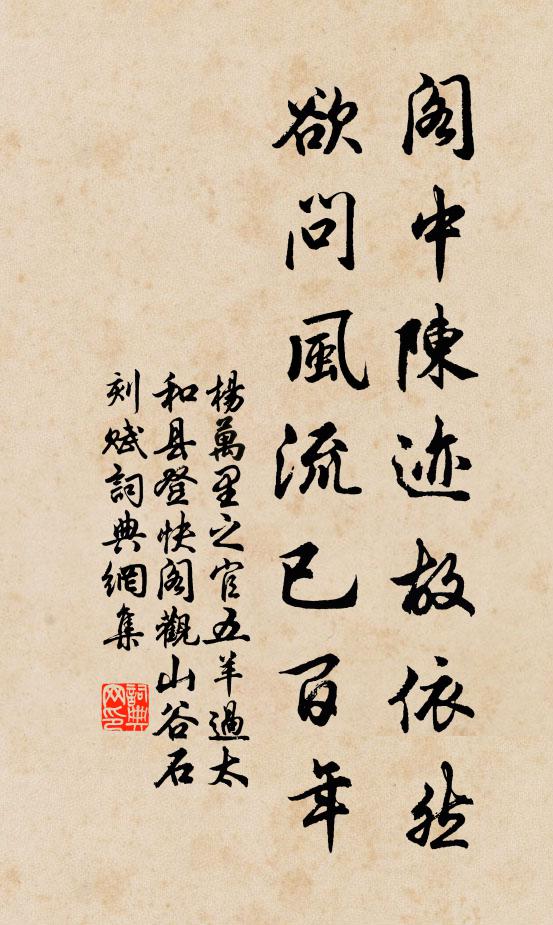 閣中陳迹故依然
欲問風流已百年
楊萬里之官五羊過太
和县登快閣觀山谷石
刻赋詞典網集
詞典
网印